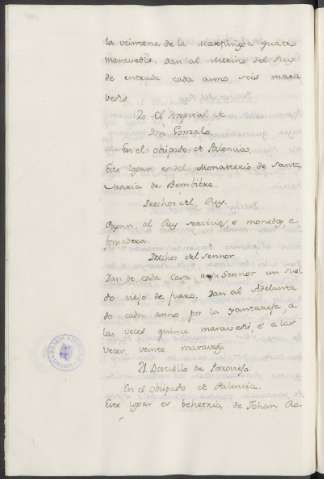 la veintena de la Martiniega quatro
maravedis, dan al Merino del Rey
de entrada cada anno seis mara
vedis.
El Hospital de
Don Gonzalo
En el obispado de Palencia.
Este logar es del Monasterio de Santa
Maria de Benbibre.
Derechos del Rey.
al Rey servicio, e moneda, e
fonsadera
Derechos del Sennor
Dan de cada casa al Sennor un suel
do viejo de fuero, dan al Adelanta
do cada anno por la yantareja a
las veces quince maravedis, e a las
veces veinte maravedis
El Barrillo de
En el obispado de Palencia.
Este logar es behetria de Johan